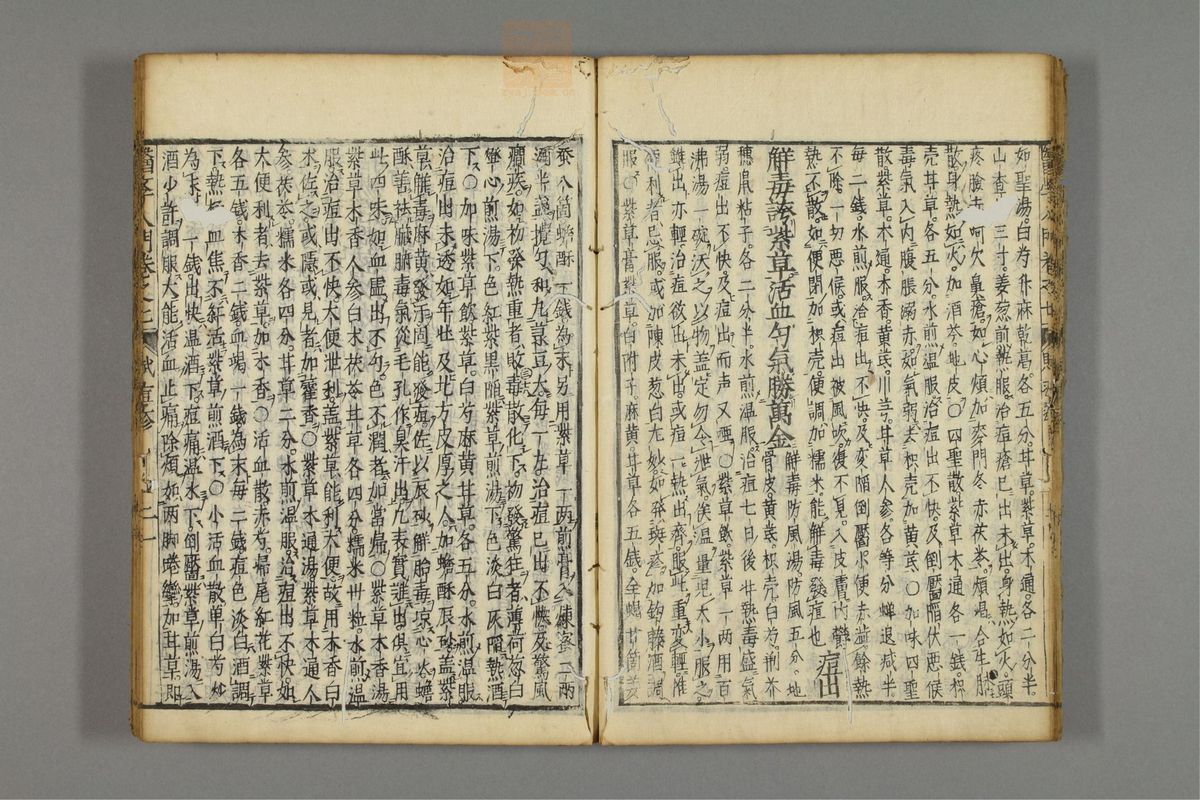 如聖湯。白芍升麻乾葛各五分甘草。紫草木通。各二分半
山查。三寸。姜葱煎服。治痘瘡已出未出。身熱如火。頭
疼臉赤呵欠鼻瘡如心煩加麥門冬赤茯苓。煩渴。合生脉
散。身熱如火。加酒芩地皮。〇四聖散紫草木通各一錢。枳
壳甘草。各五分。水煎温服。治痘出不快。及倒靨陷伏悪候
毒氣入内腹脹。弱赤如氣弱去枳壳加黄芪。〇加味四聖
散紫草。木通。木香黄芪。川芎。甘草人参各等分蝉退减半
毎二錢。水煎服。治痘出不快及変陷倒靨小便赤澁餘熱
不除一切悪候。或痘出被風吹。復不見。入皮膚内攣
熱不散。如便閉加枳壳。便調加糯米。能解毒發痘也 痘出
解毒諸紫草活血勻氣勝萬金 解毒防風湯。防風五分。地
骨皮。黄芪枳壳白芍。荊芥
穗鼠粘子。各二分半水煎温服。治痘七日後壮熱毒盛氣
弱痘出不快。及痘出而声又啞〇紫草飲紫草一两用百
沸湯一碗沃之。以物盖定勿令泄氣。俟温量児大小服之
雖出亦軽治痘欲出未出。或痘一熱出齊。服此重変軽。惟
利者忌服。或加陳皮葱白尤妙如發斑疹加鈎藤酒調
服〇紫草膏紫草。白附子。麻黄。甘草各五錢。全蝎廿箇姜
蚕八箇蟾酥一錢為末另用紫草一两煎膏入煉蜜二两
酒半盞攪勻和丸菉豆大。毎一丸治痘已出不快及驚風
瘡疹如初發熱重者敗毒散化下初發驚狂者薄荷泡白
心煎湯下。色紅紫黒陷紫草煎湯下。色淡白灰陷熱酒
下。〇加味紫草飲紫草。白芍麻黄甘草。各五分。水煎温服
治痘出未透如年壮及北方皮厚之人。加蟾酥辰砂盖紫
草觧毒麻黄發汗固能發痘。佐以辰砂解胎毒凉心火蟾
酥善袪臓腑毒氣從毛孔作臭汗出凡表實誰出俱宜用
此四味如血虚出不勻色不潤者加當帰〇紫草木香湯
紫草木香人参白朮茯苓甘草各四分糯米卅粒。水煎温
服治痘出不快。大便泄利盖紫草能利大便。故用木香白
术佐之。或隠或見者加藿香。〇紫草木通湯紫草木通人
参茯苓糯米各四分。甘草二分。水煎温服。治痘出不快。如
大便利者。去紫草。加木香。〇活血散。赤芍。帰尾紅花紫草
各五錢。木香二錢血竭一錢為末毎二錢。痘色淡白酒調
下。熱血焦不鮮活紫草煎酒下〇小活血散单白芍炒
為末一錢出快温酒下痘痛温水下倒靨紫草煎湯入
酒少許調服大能活血止痛除煩如两脚攣加甘草。即